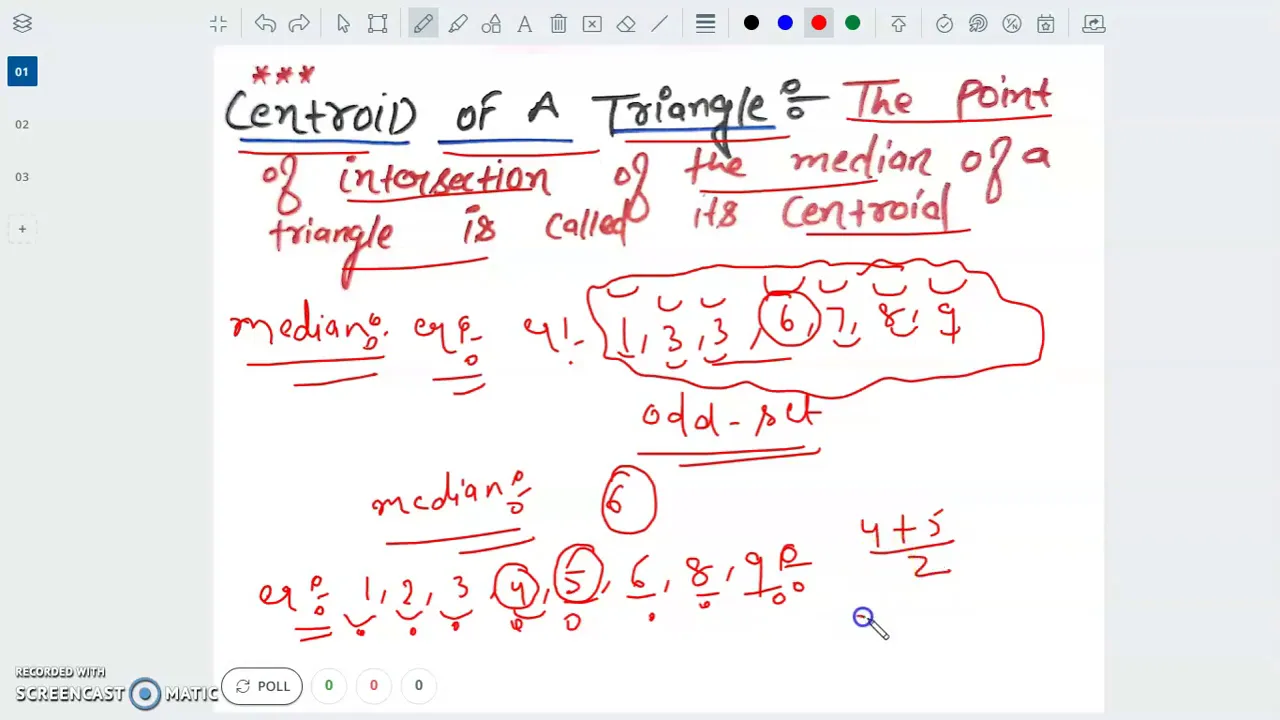 01
02
03
+
***
Centroid of A Triangle :- The point
of intersection of the median of a
triangle is called its Centroid
median :- ex :- ex! - 1, 3, 3, 6, 7, 8, 9
odd - set
median :- 6
4 + 5
2
ex :- 1, 2, 3, 4, 5, 6, 8, 9
RECORDED WITH
SCREENCAST MATIC
POLL
0
0
0